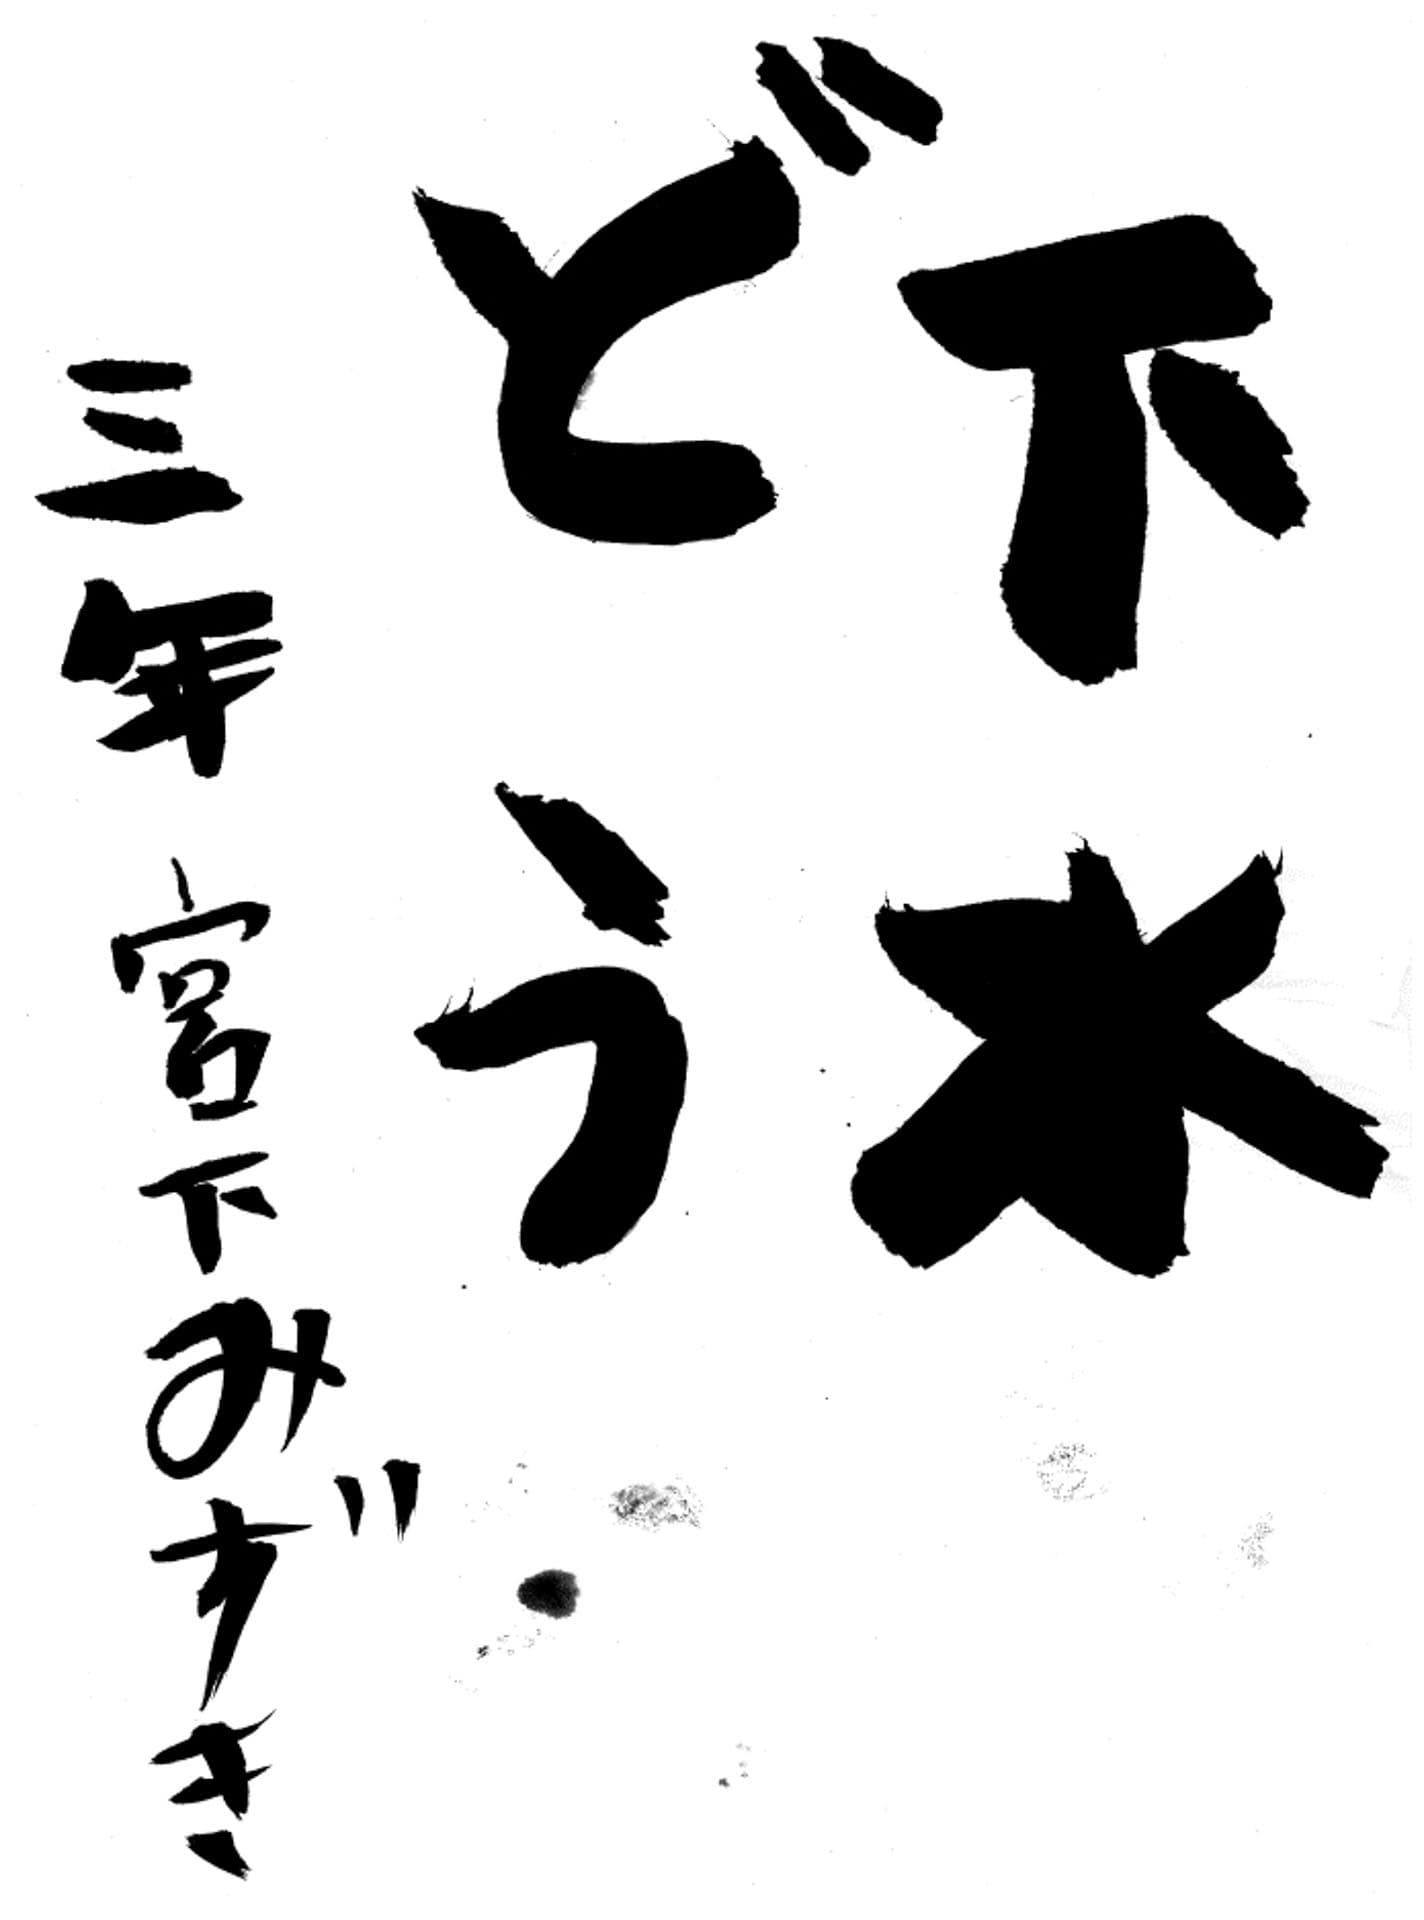 下水
どう
三年 宮下みずき